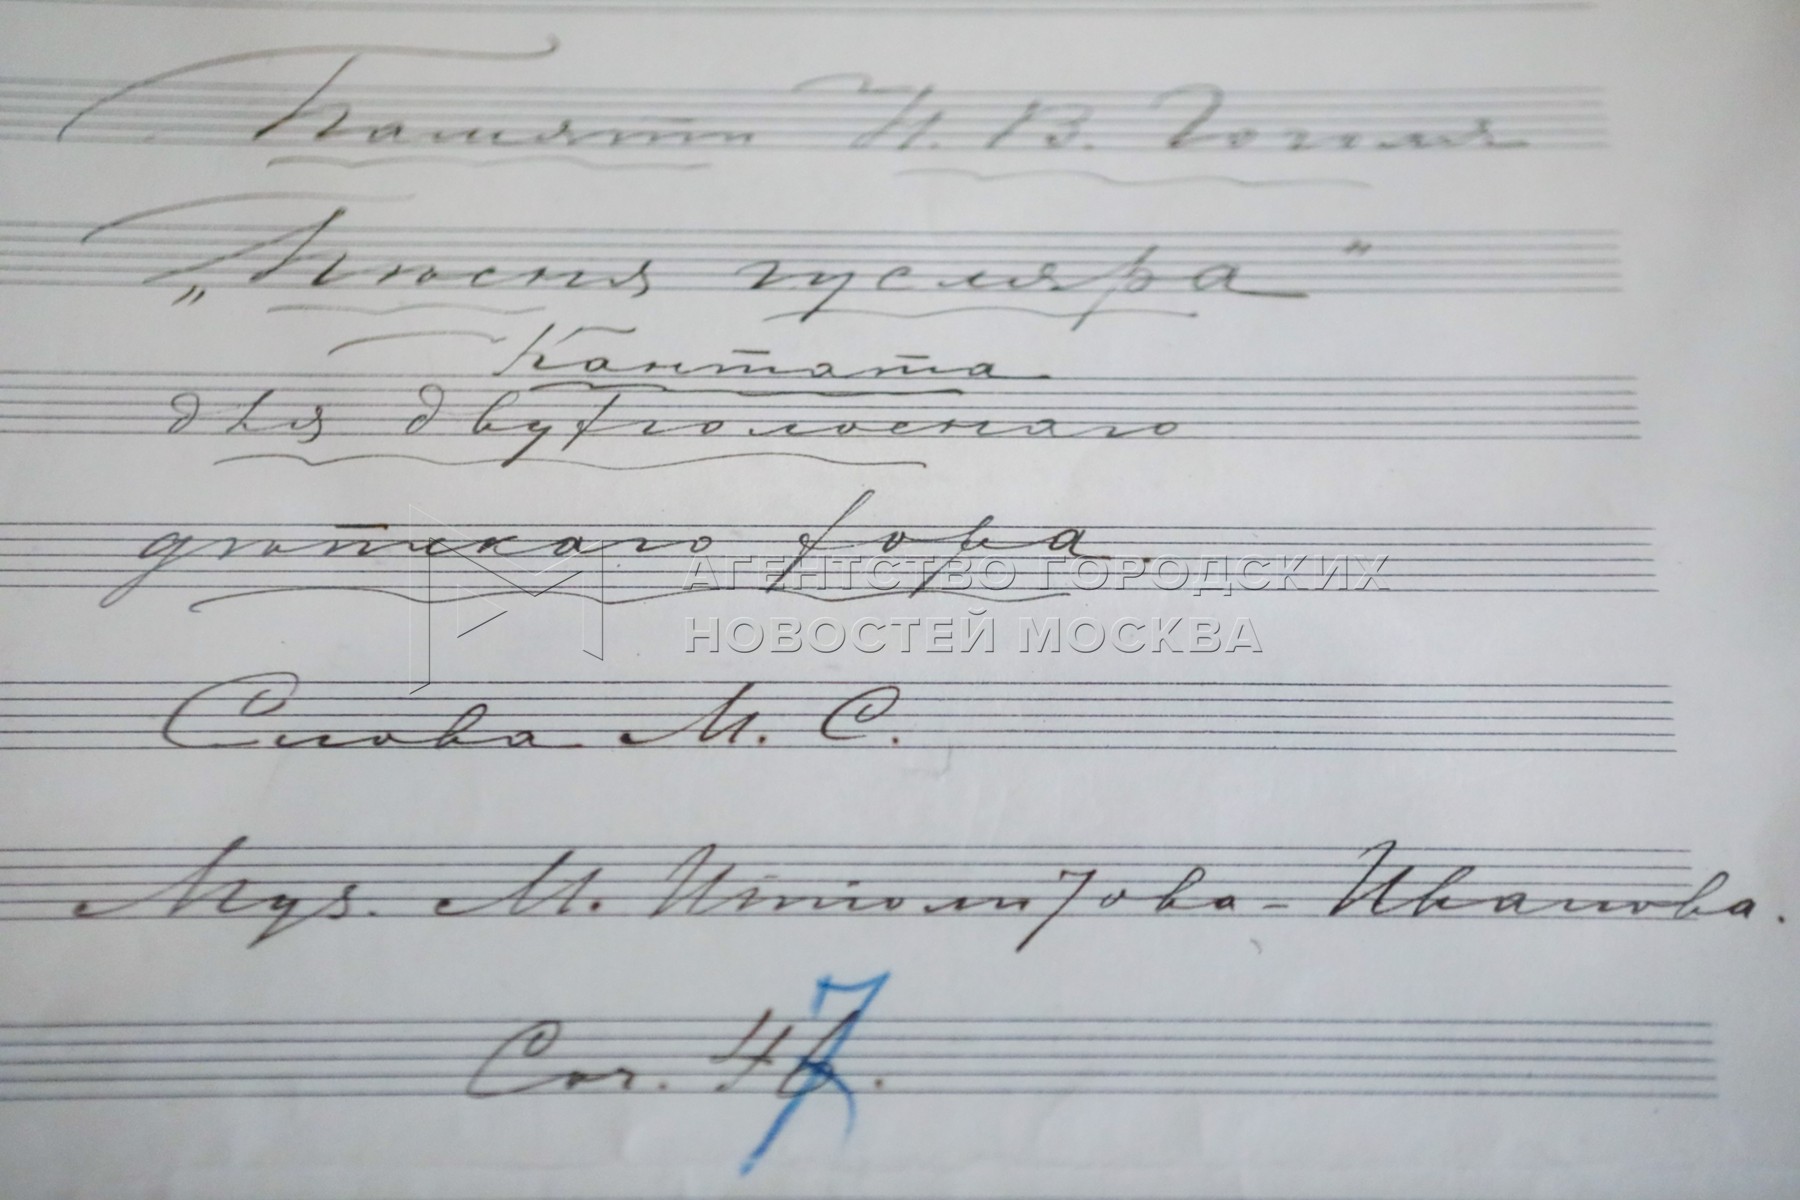 Памяти Н. В. Гоголя
„Пѣсня гусляра"
Кантата
для двухголоснаго
дѣтскаго хора.
АГЕНТСТВО ГОРОДСКИХ
НОВОСТЕЙ МОСКВА
Слова М. С.
Муз. М. Ипполитова-Иванова.
Соч. 47.